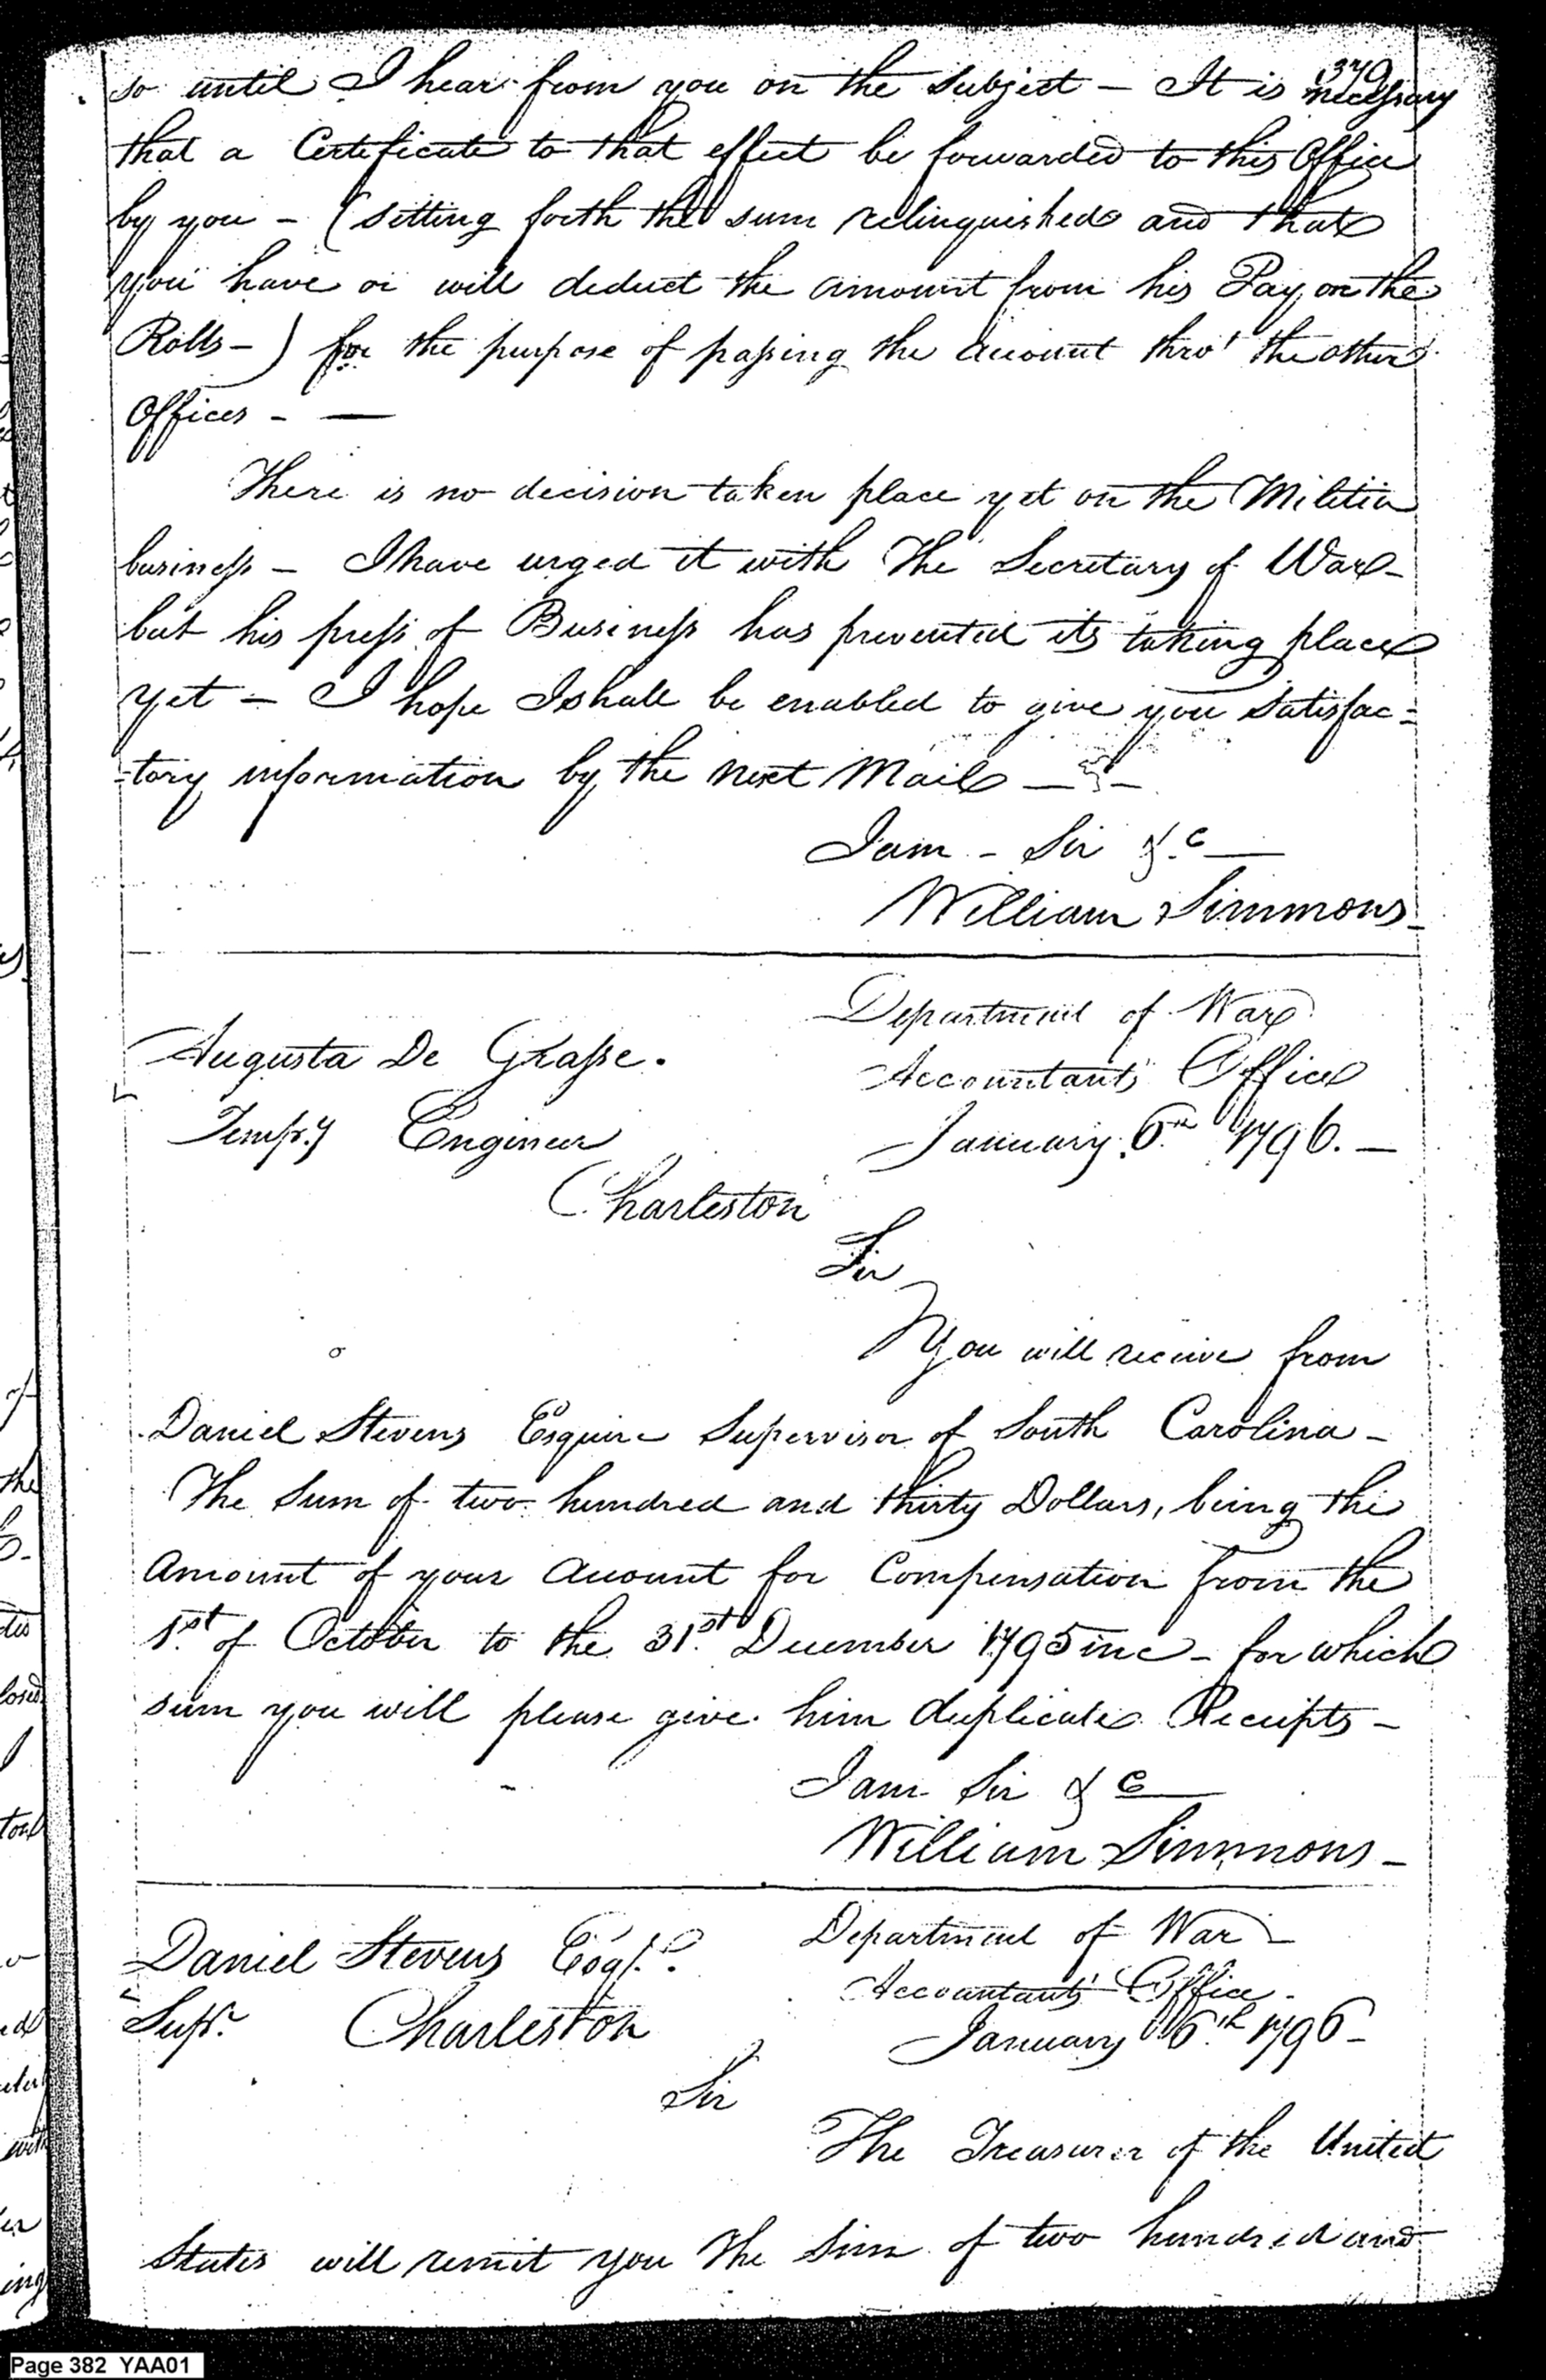 370
so until I hear from you on the subject – It is necessary
that a Certificate to that effect be forwarded to this Office
by you – (setting forth the sum relinquished and that
you have or will deduct the amount from his Pay on the
Rolls – ) for the purpose of passing the Account thro' the other
Offices – —
There is no decision taken place yet on the Militia
business – I have urged it with The Secretary of War –
but his press of Business has prevented its taking place
yet – I hope I shall be enabled to give you satisfac=
=tory information by the next Mail —
I am – Sir &c —
William Simmons –
Department of War
Augusta De Grasse.
Accountants Office
Temp.y Engineer
January 6th 1796. –
Charleston
Sir
You will receive from
Daniel Stevens Esquire Supervisor of South Carolina –
The Sum of two hundred and thirty Dollars, being the
Amount of your Account for Compensation from the
1st of October to the 31st December 1795 inc – for which
sum you will please give him duplicate Receipts –
I am Sir &c —
William Simmons –
Daniel Stevens Esqr.
Department of War
Accountants' Office.
Supr. Charleston
January 6th 1796 –
Sir
The Treasurer of the United
States will remit you The Sum of two hundred and
of
the
tes
losed
ton
ed
with
er
ing
Page 382 YAA01